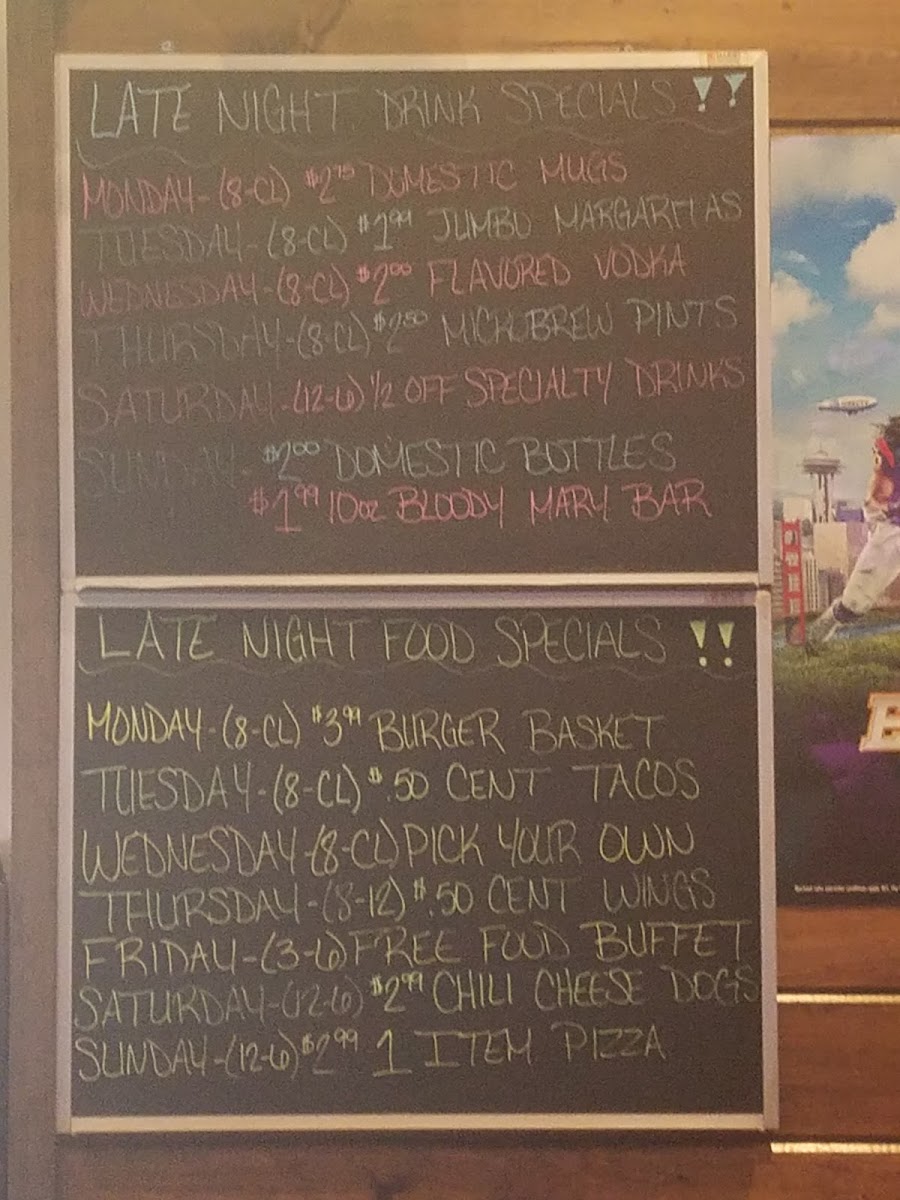 LATE NIGHT DRINK SPECIALS !!
MONDAY-(8-CL) $2.75 DOMESTIC MUGS
TUESDAY-(8-CL) $1.99 JUMBO MARGARITAS
WEDNESDAY-(8-CL) $2.00 FLAVORED VODKA
THURSDAY-(8-CL) $2.50 MICROBREW PINTS
SATURDAY-(12-6) 1/2 OFF SPECIALTY DRINKS
SUNDAY- $2.00 DOMESTIC BOTTLES
$1.99 10oz BLOODY MARY BAR
LATE NIGHT FOOD SPECIALS !!
MONDAY-(8-CL) $3.99 BURGER BASKET
TUESDAY-(8-CL) $.50 CENT TACOS
WEDNESDAY-(8-CL) PICK YOUR OWN
THURSDAY-(8-12) $.50 CENT WINGS
FRIDAY-(3-6) FREE FOOD BUFFET
SATURDAY-(12-6) $2.99 CHILI CHEESE DOGS
SUNDAY-(12-6) $2.99 1 ITEM PIZZA